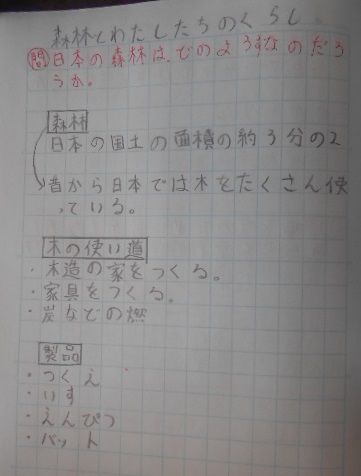 森林とわたしたちのくらし
問 日本の森林は、どのようすなのだろ
うか。
森林
日本の国土の面積の約3分の2
昔から日本では木をたくさん使
っている。
木の使い道
・木造の家をつくる。
・家具をつくる。
・炭などの燃
製品
・つくえ
・いす
・えんぴつ
・バット